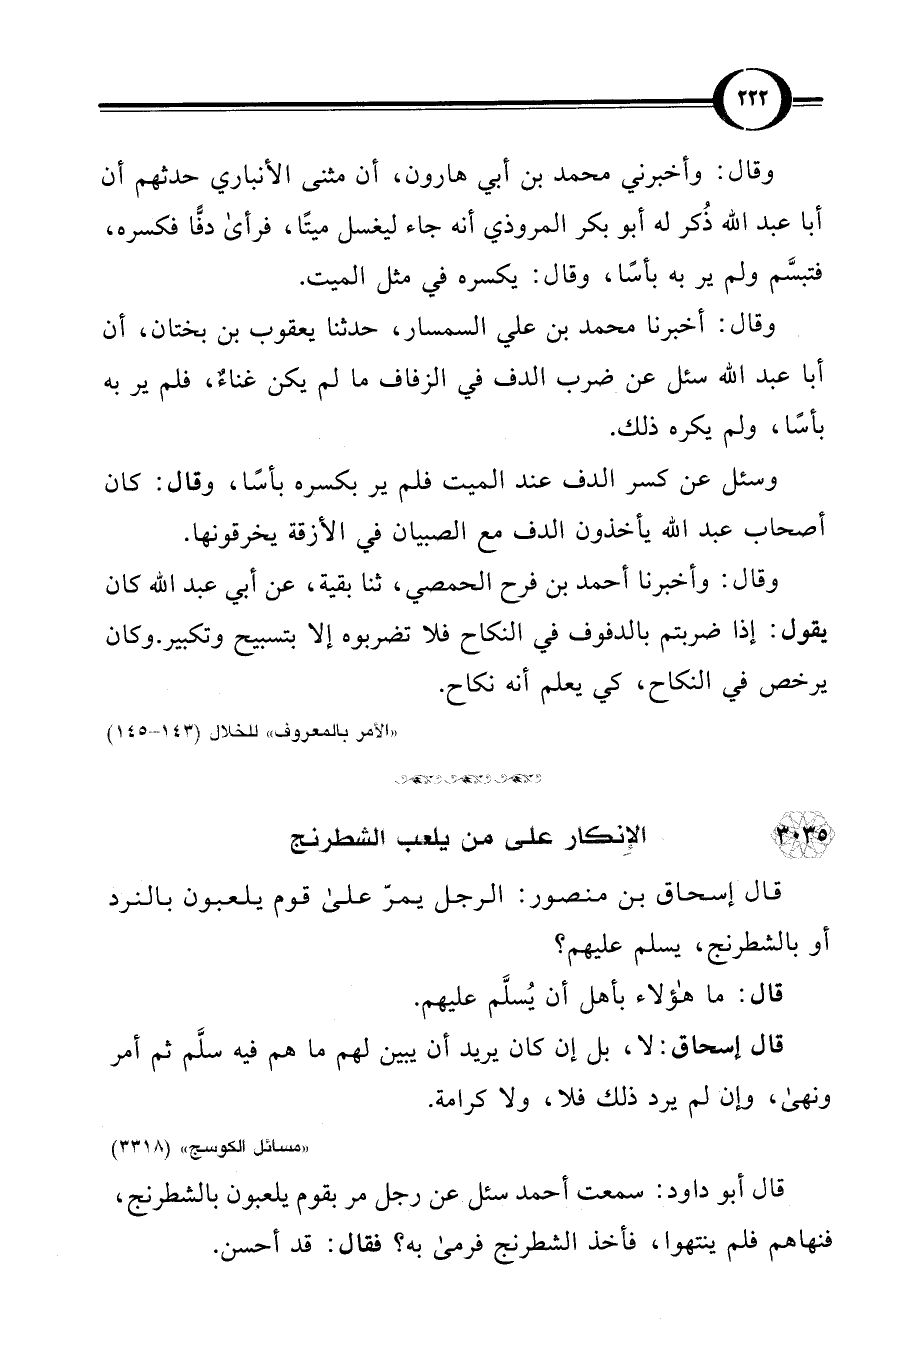 ٢٢٢
وقال: وأخبرني محمد بن أبي هارون، أن مثنى الأنباري حدثهم أن
أبا عبد الله ذُكر له أبو بكر المروذي أنه جاء ليغسل ميتًا، فرأىٰ دفًّا فكسره،
فتبسَّم ولم ير به بأسًا، وقال: يكسره في مثل الميت.
وقال: أخبرنا محمد بن علي السمسار، حدثنا يعقوب بن بختان، أن
أبا عبد الله سئل عن ضرب الدف في الزفاف ما لم يكن غناءٌ، فلم ير به
بأسًا، ولم يكره ذلك.
وسئل عن كسر الدف عند الميت فلم ير بكسره بأسًا، وقال: كان
أصحاب عبد الله يأخذون الدف مع الصبيان في الأزقة يخرقونها.
وقال: وأخبرنا أحمد بن فرح الحمصي، ثنا بقية، عن أبي عبد الله كان
يقول: إذا ضربتم بالدفوف في النكاح فلا تضربوه إلا بتسبيح وتكبير.وكان
يرخص في النكاح، كي يعلم أنه نكاح.
«الأمر بالمعروف» للخلال (١٤٣-١٤٥)
٣٠٣٥ الإنكار على من يلعب الشطرنج
قال إسحاق بن منصور: الرجل يمرّ علىٰ قوم يلعبون بالنرد
أو بالشطرنج، يسلم عليهم؟
قال: ما هٰؤلاء بأهل أن يُسلَّم عليهم.
قال إسحاق:لا، بل إن كان يريد أن يبين لهم ما هم فيه سلَّم ثم أمر
ونهىٰ، وإن لم يرد ذلك فلا، ولا كرامة.
«مسائل الكوسج» (٣٣١٨)
قال أبو داود: سمعت أحمد سئل عن رجل مر بقوم يلعبون بالشطرنج،
فنهاهم فلم ينتهوا، فأخذ الشطرنج فرمىٰ به؟ فقال: قد أحسن.